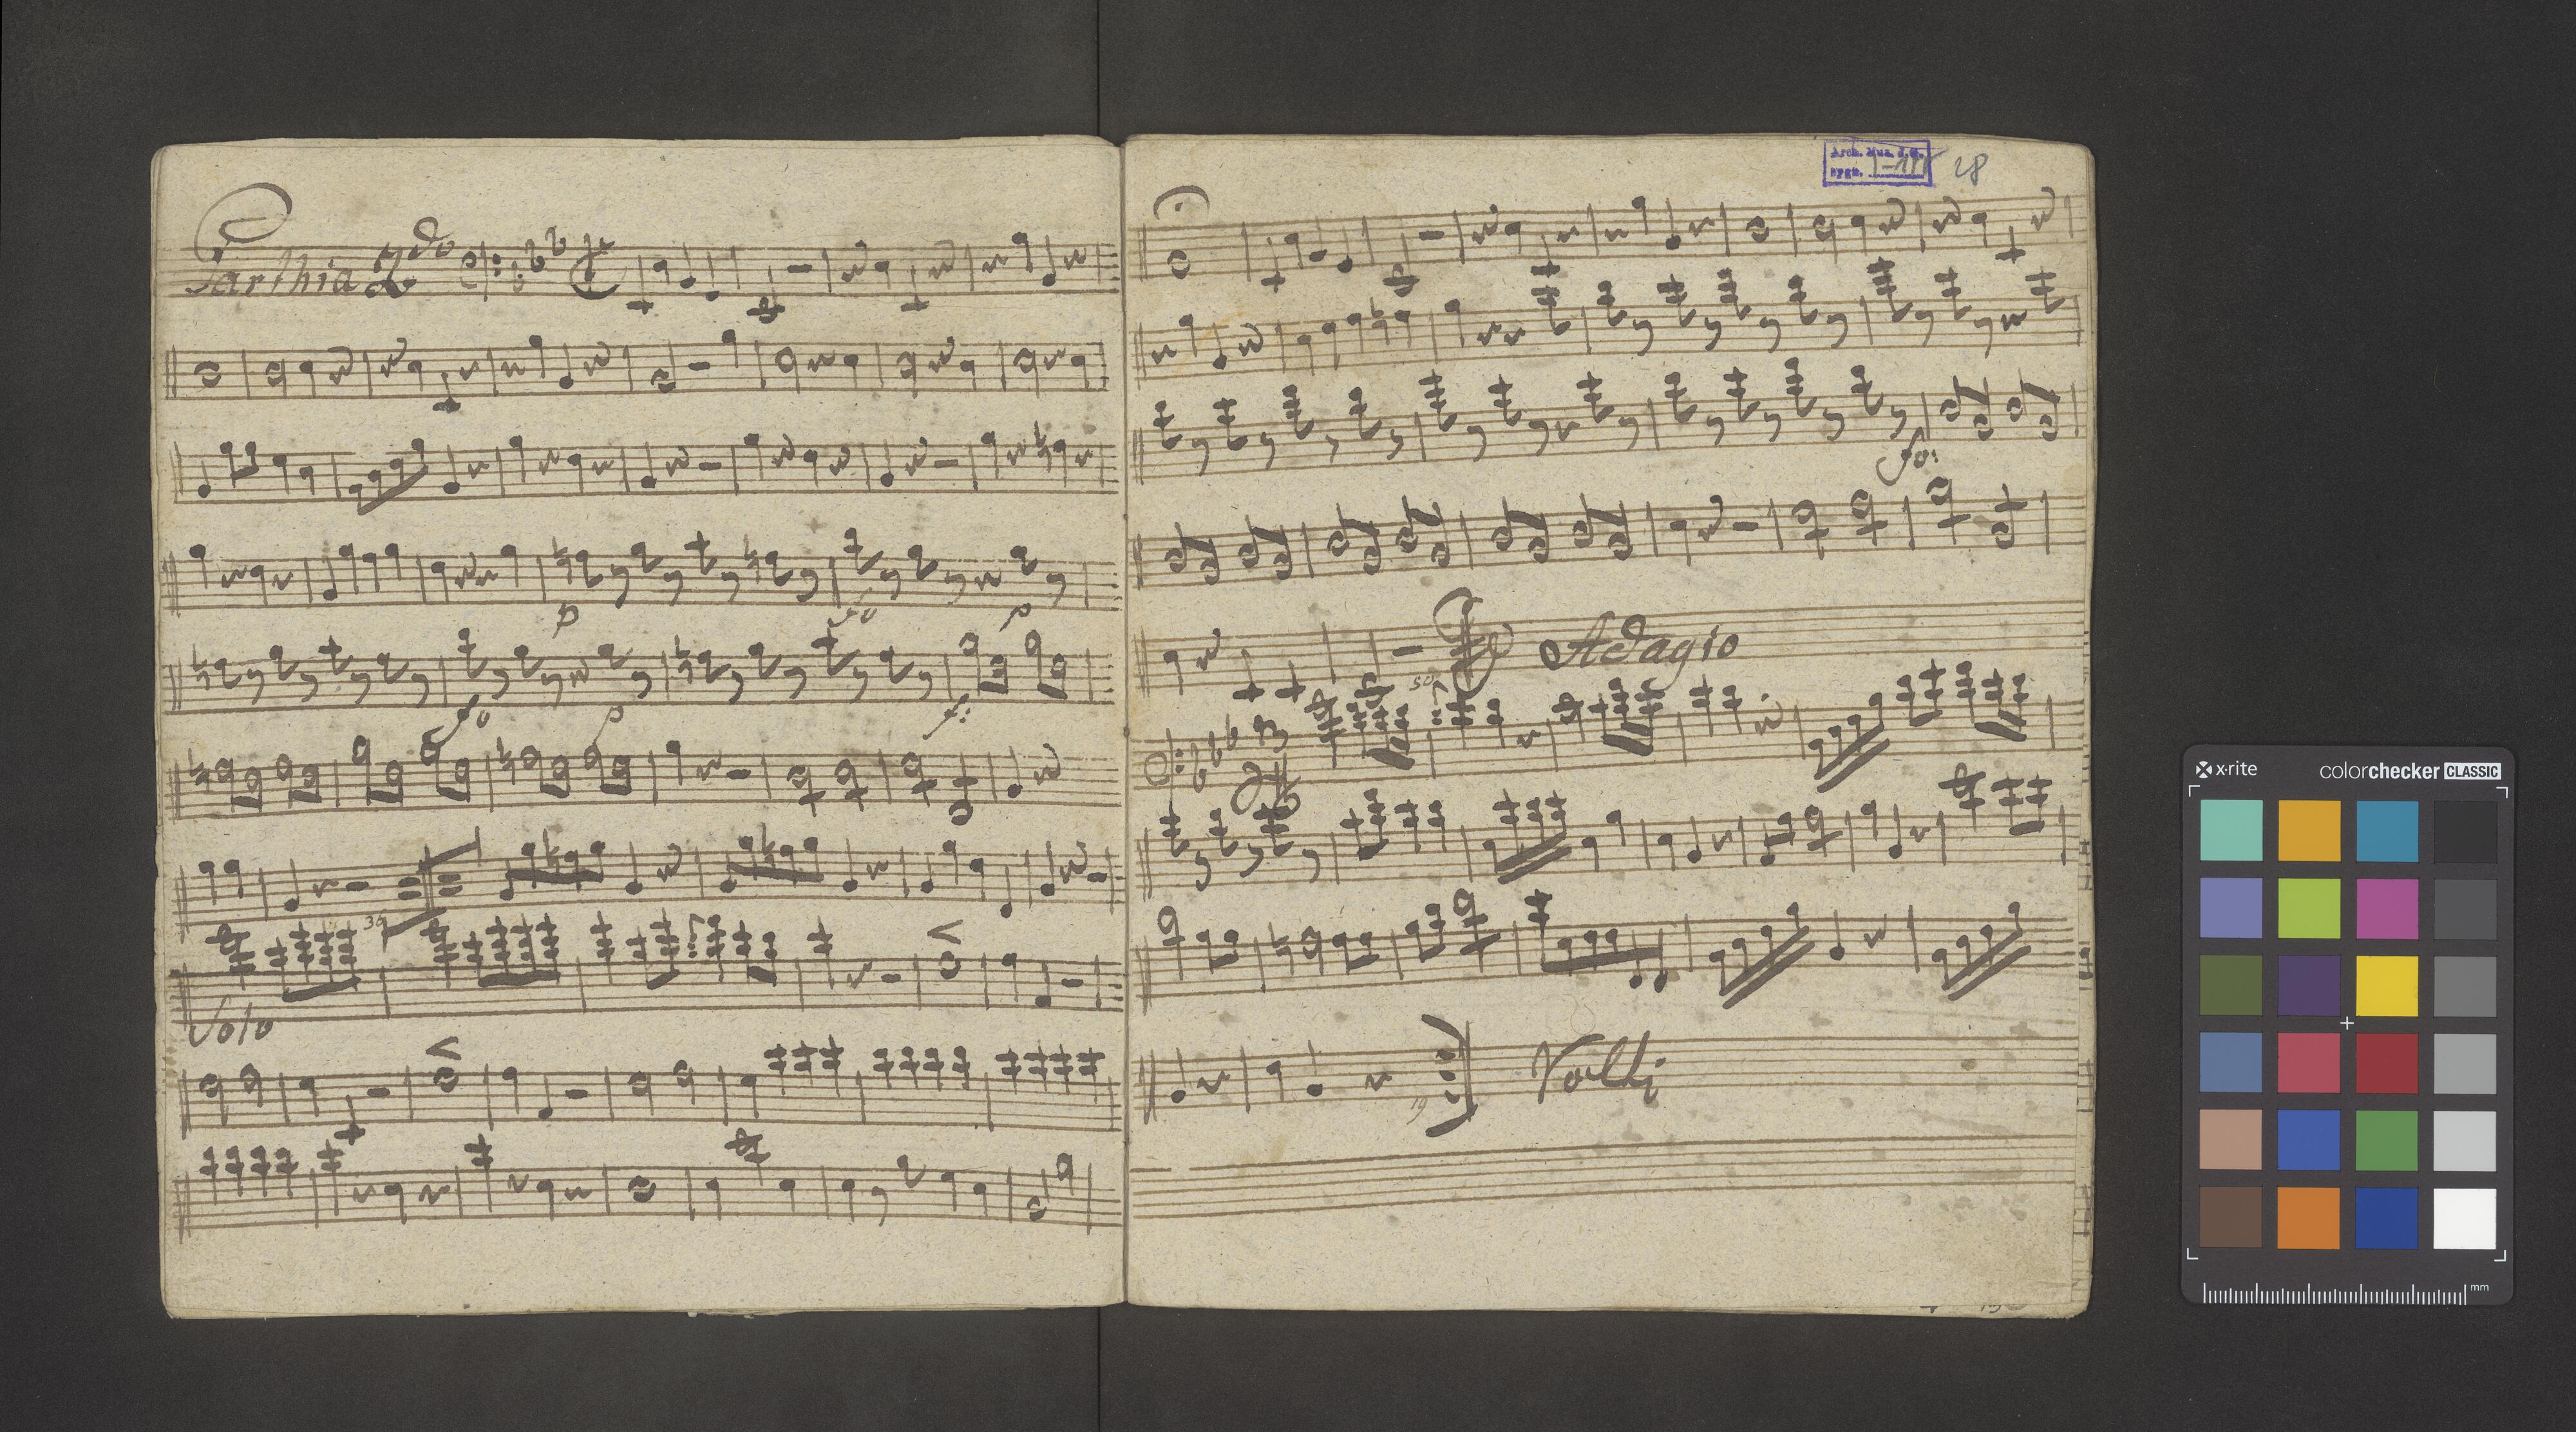 Parthia 2do
p
fo
p
fo
p
f:
36
Solo
Arch. Muz. J. G.
sygn.
28
fo:
50
Adagio
3
19
Volti
x-rite
colorchecker CLASSIC
mm